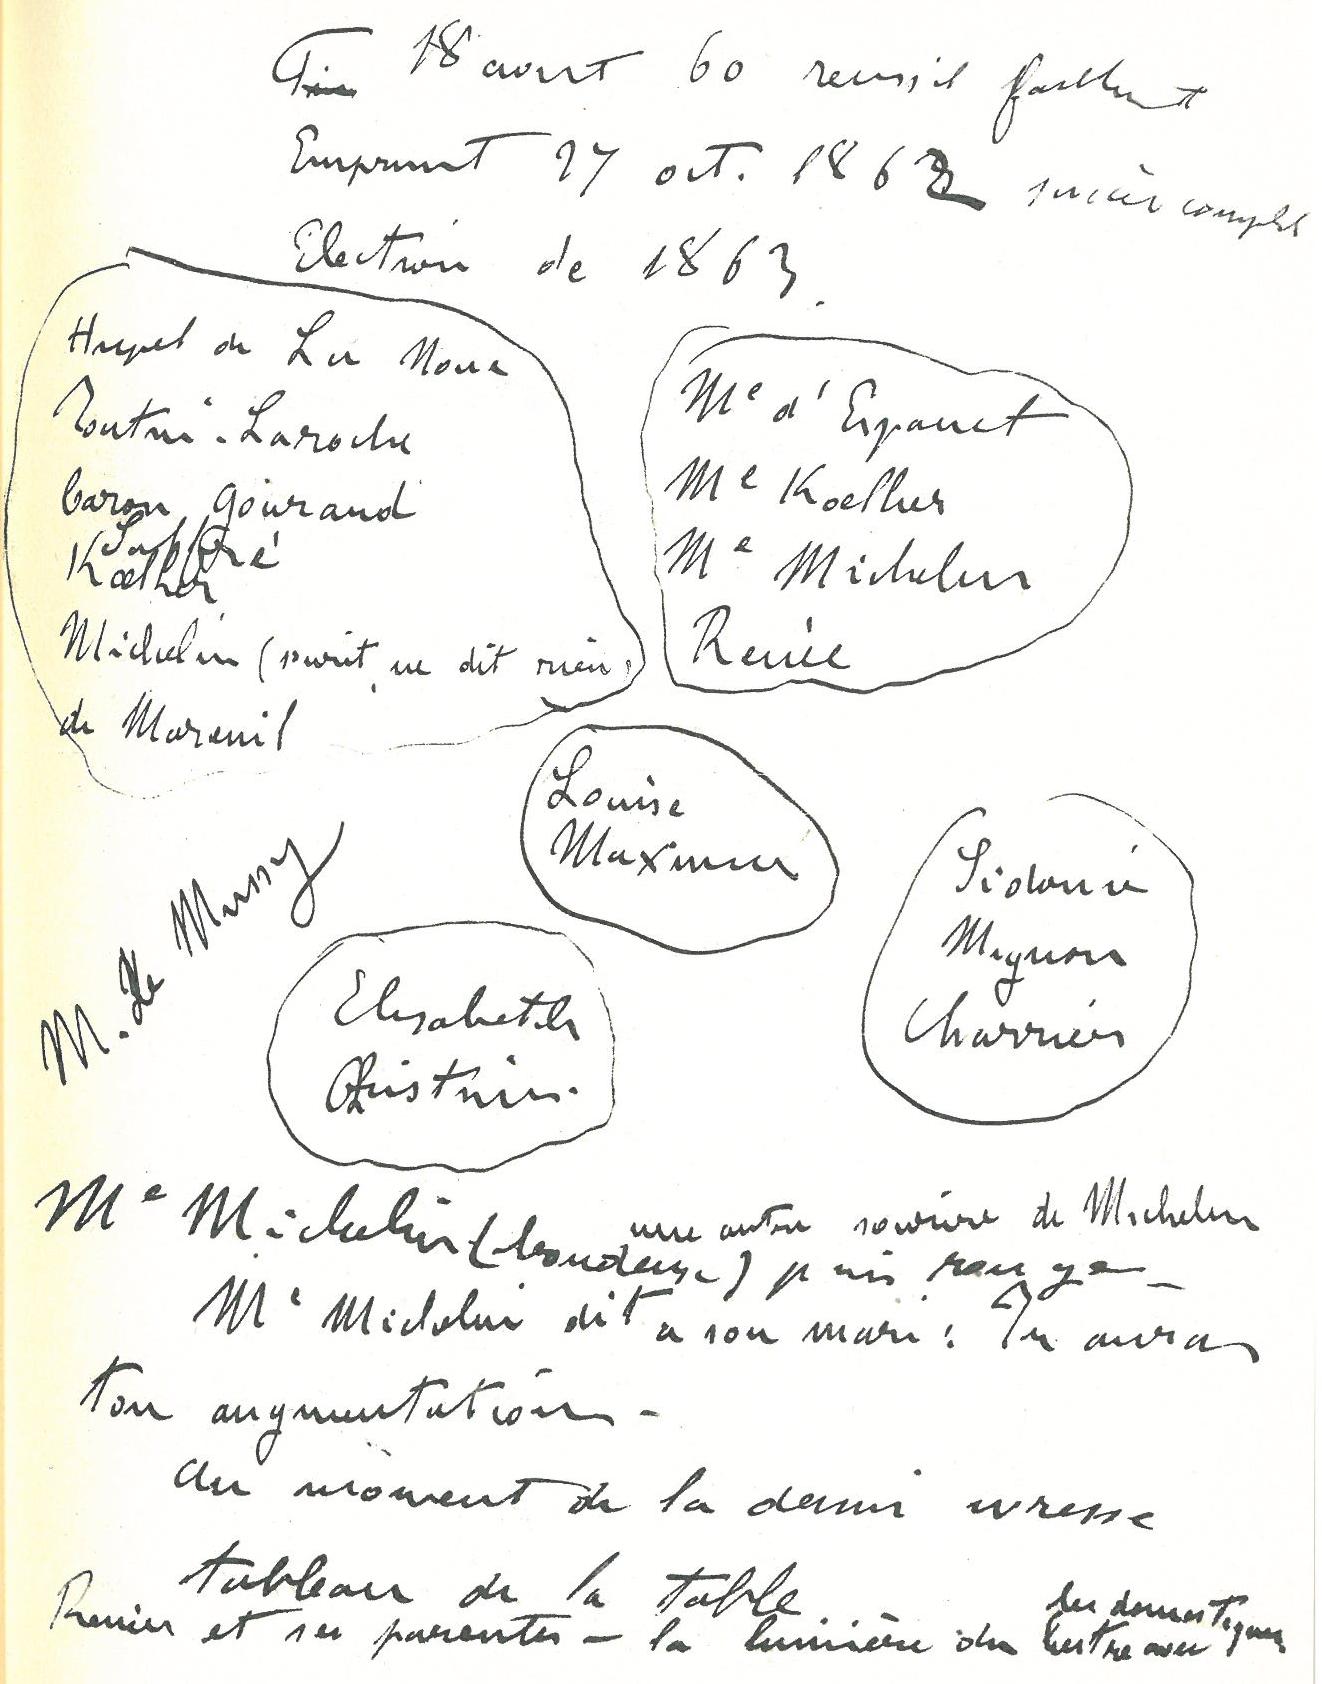 18 aout 60 reussit faiblement
Emprunt 27 oct. 1862 succès complet
Election de 1863.
Hupel de La Noue
Toutin-Laroche
baron Gouraud
Saffré
Kœller
Michelin (sourit, ne dit rien)
de Mareuil
Me d'Espanet
Me Koeller
Me Michelin
Renée
Louise
Maxime
Sidonie
Mignon
Charrier
M. de Mussy
Elisabeth
Christine.
une autre sourire de Michelin
Me Michelin (boudeuse) puis rouge –
Me Michelin dit à son mari : Tu auras
ton augmentation –
Au moment de la demi ivresse
tableau de la table
Renée et ses parentes – la lumière du lustre avec
les domestiques